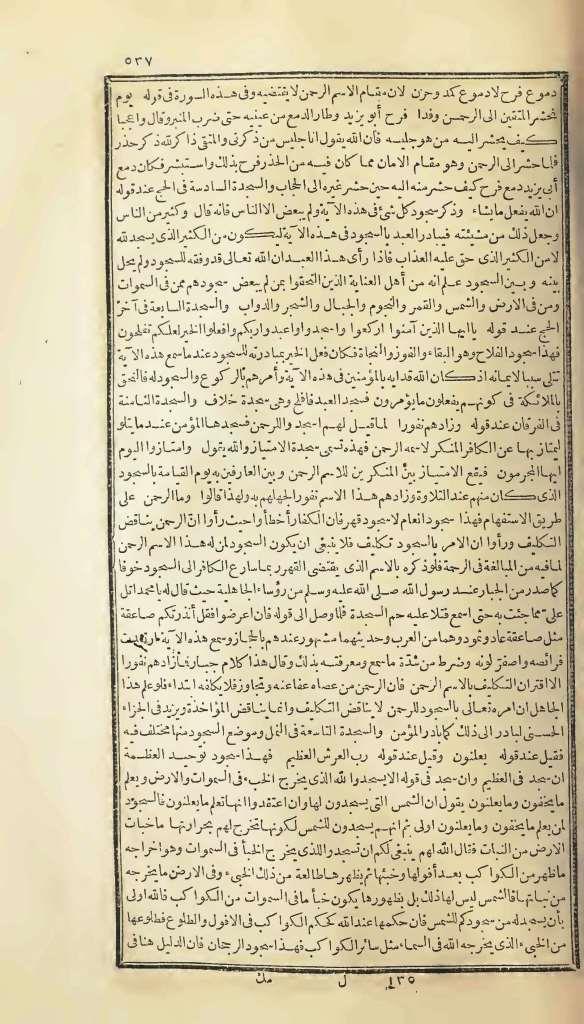 ٥٣٧
دموع فرح لا دموع كمد وحزن لان مقام الاسم الرحمن لا يقتضيه وفي هذه السورة في قوله يوم
يحشر المتقين الى الرحمن وفدا فرح أبو يزيد وطار الدمع من عينيه حتى ضرب المنبر وقال واعجبا
كيف يحشر اليه من هو جليسه فان الله يقول انا جليس من ذكرني والمتقى ذاكر لله ذكر حذر
فلما حشر الى الرحمن وهو مقام الامان مما كان فيه من الحذر فرح بذلك واستبشر فكان دمع
أبي يزيد دمع فرح كيف حشر منه اليه حين حشر غيره الى الحجاب والسجدة السادسة في الحج عند قوله
ان الله يفعل ما يشاء وذكر سجود كل شئ في هذه الآية ولم يبعض الا الناس فانه قال وكثير من الناس
وجعل ذلك من مشيئته فيبادر العبد بالسجود في هذه الآية ليكون من الكثير الذي يسجد لله
لا من الكثير الذي حق عليه العذاب فاذا رأى هذا العبد ان الله تعالى قد وفقه للسجود ولم يحل
بينه وبين السجود علم انه من أهل العناية الذين التحقوا بمن لم يبعض سجودهم ممن في السموات
ومن في الارض والشمس والقمر والنجوم والجبال والشجر والدواب والسجدة السابعة في آخر
الحج عند قوله يا ايها الذين آمنوا اركعوا واسجدوا واعبدوا ربكم وافعلوا الخير لعلكم تفلحون
فهذا سجود الفلاح وهو البقاء والفوز والنجاة فكان فعل الخير بمبادرته للسجود عند ما سمع هذه الآية
تتلى سببا لايمانه اذ كان الله قد ايه بالمؤمنين في هذه الآية وأمرهم بالركوع والسجود له فالتحق
بالملائكة في كونهم يفعلون ما يؤمرون فسجد العبد فافلح وهي سجدة خلاف والسجدة الثامنة
في الفرقان عند قوله وزادهم نفورا لما قيل لهم اسجدوا للرحمن فسجدها المؤمن عند ما يتلو
ليمتاز بها عن الكافر المنكر لاسمه الرحمن فهذه تسمى سجدة الامتياز والله يقول وامتازوا اليوم
ايها المجرمون فيقع الامتياز بين المنكرين للاسم الرحمن وبين العارفين به يوم القيامة بالسجود
الذي كان منهم عند التلاوة وزادهم هذا الاسم نفورا لجهلهم به ولهذا قالوا وما الرحمن على
طريق الاستفهام فهذا سجود انعام لا سجود قهر فان الكفار أخطأوا حيث رأوا ان الرحمن يناقض
التكليف ورأوا ان الامر بالسجود تكليف فلا ينبغي ان يكون السجود لمن له هذا الاسم الرحمن
لما فيه من المبالغة في الرحمة فلو ذكره بالاسم الذي يقتضى القهر ربما سارع الكافر الى السجود خوفا
كما صدر من الجبار عند رسول الله صلى الله عليه وسلم من رؤساء الجاهلية حيث قال له يا محمد اتل
على مما جئت به حتى اسمع فتلا عليه حم السجدة فلما وصل الى قوله فان اعرضوا فقل أنذرتكم صاعقة
مثل صاعقة عاد وثمود وهما من العرب وحديثهما مشهور عندهم بالحجاز وسمع هذه الآية ارتعدت
فرائصه واصفر لونه وضرط من شدة ما سمع ومعرفته بذلك وقال هذا كلام جبار فما زادهم نفورا
الا اقتران التكليف بالاسم الرحمن فان الرحمن من عصاه عفا عنه وتجاوز فلا يكلفه ابتداء فلو علم هذا
الجاهل ان امره تعالى بالسجود للرحمن لا يناقض التكليف وانما يناقض المؤاخذة ويزيد في الجزاء
الحسنى لبادر الى ذلك كما بادر المؤمن والسجدة التاسعة في النمل وموضع السجود منها مختلف فيه
فقيل عند قوله يعلنون وقيل عند قوله رب العرش العظيم فهذا سجود توحيد العظمة
ان سجد في العظيم وان سجد في قوله الا يسجدوا لله الذي يخرج الخبء في السموات والارض ويعلم
ما يخفون وما يعلنون يقول ان الشمس التي يسجدون لها وان اعتقدوا انها تعلم ما يعلنون فالسجود
لمن يعلم ما يخفون وما يعلنون اولى ثم انهم يسجدون للشمس لكونها تخرج لهم بحرارتها ما خبأت
الارض من النبات فقال الله لهم ينبغي لكم ان تسجدوا للذي يخرج الخبأ في السموات وهو اخراجه
ما ظهر من الكواكب بعد أفولها وخبئها ثم يظهرها طالعة من ذلك الخبىء وفي الارض ما يخرجه
من نباتها فالشمس ليس لها ذلك بل بظهورها يكون خبأ ما في السموات من الكواكب فالله اولى
بان يسجد له من سجودكم للشمس فان حكمها عند الله كحكم الكواكب في الافول والطلوع فطلوعها
من الخبىء الذي يخرجه الله في السماء مثل سائر الكواكب فهذا سجود الرجحان فان الدليل هنا في
١٣٥ ل مك